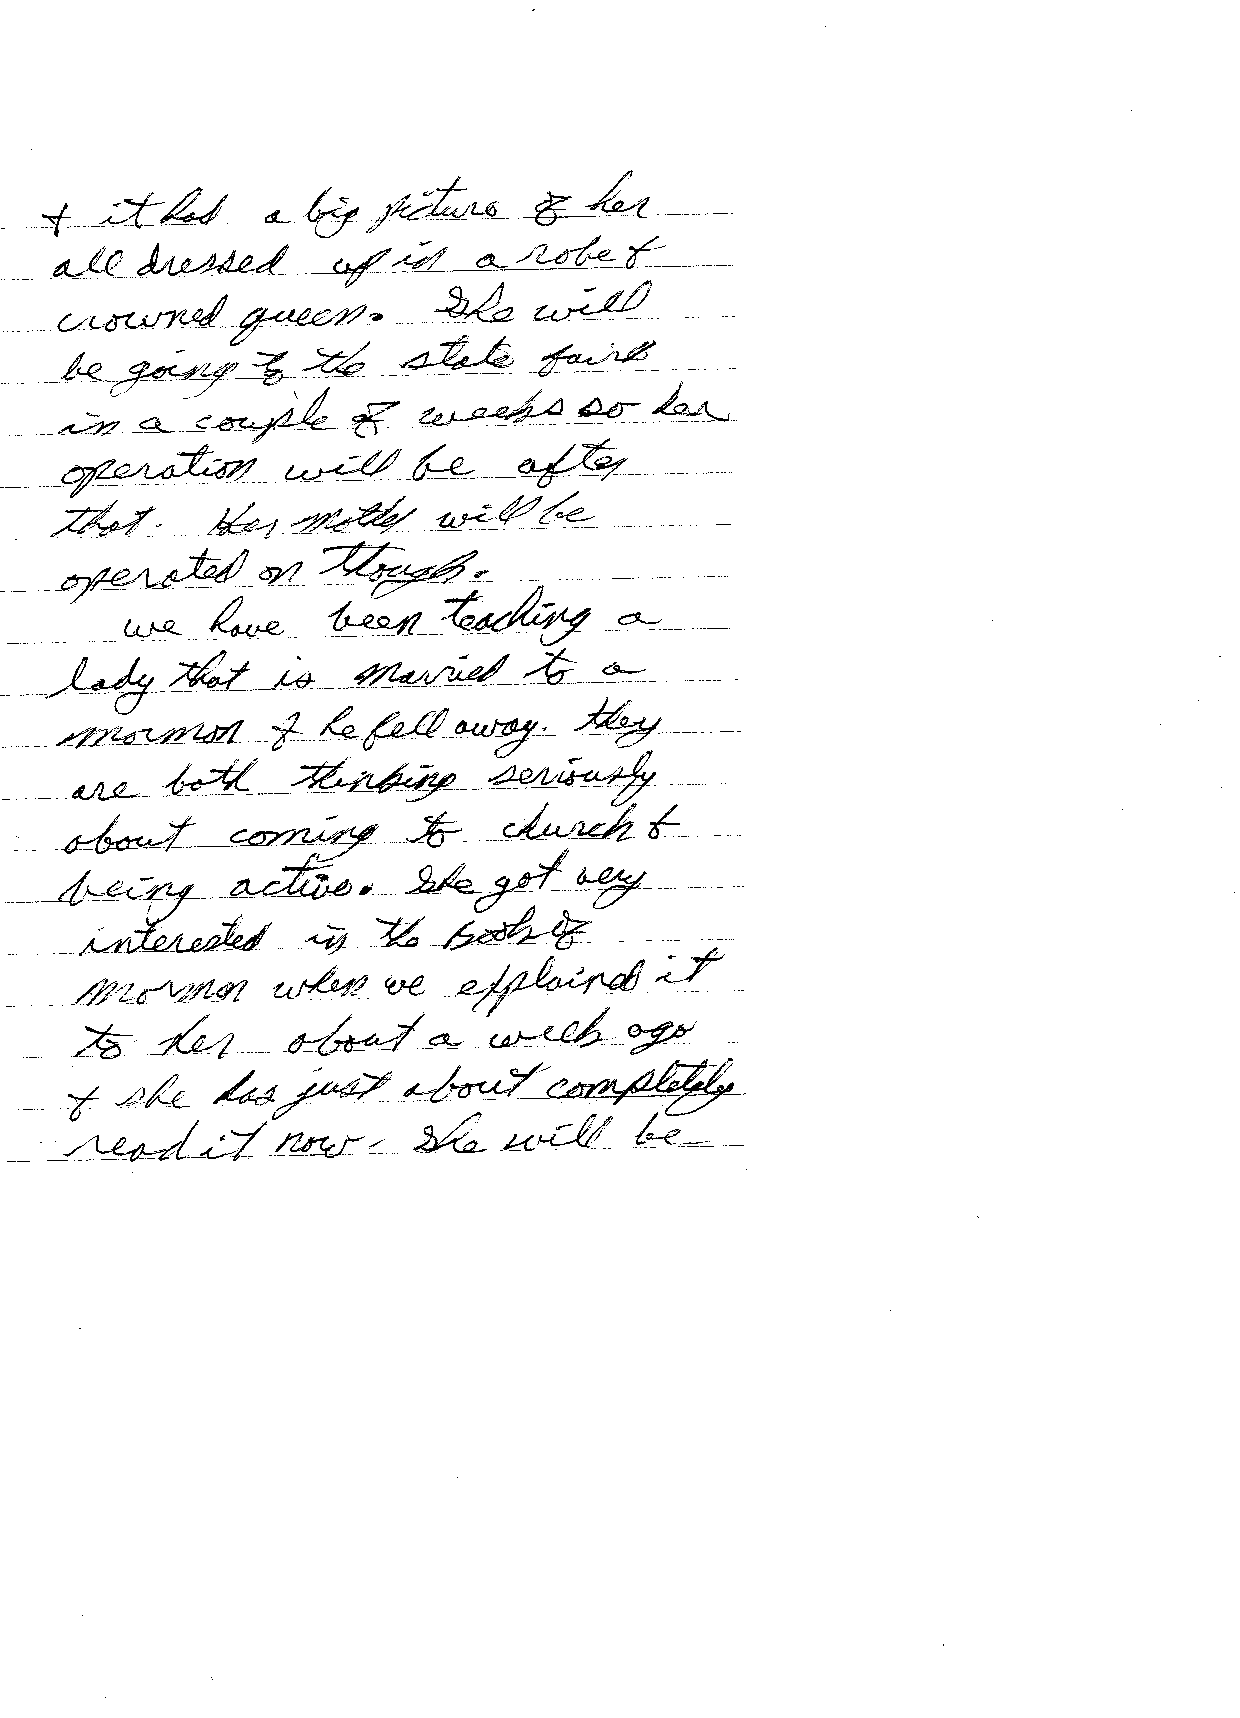 & it had a big picture of her
all dressed up in a robe &
crowned queen. She will
be going to the state fair
in a couple of weeks so her
operation will be after
that. Her mother will be
operated on though.
we have been teaching a
lady that is married to a
mormon & he fell away. they
are both thinking seriously
about coming to church &
being active. She got very
interested in the Book of
Mormon when we explained it
to her about a week ago
& she has just about completely
read it now. She will be